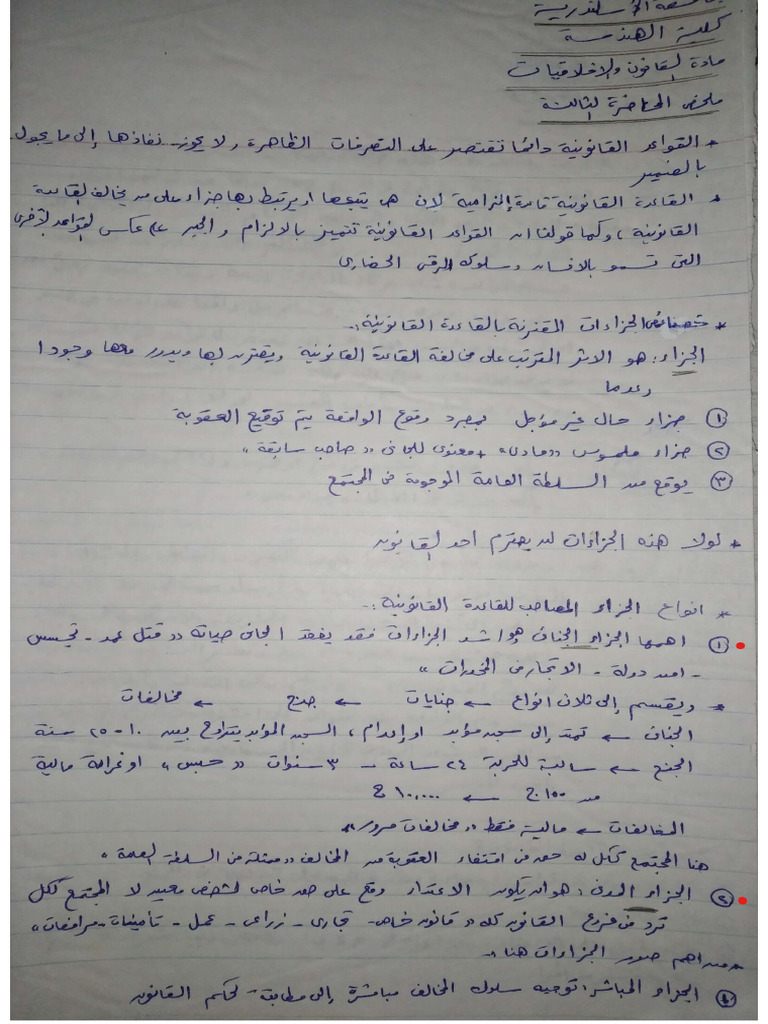 جامعة الإسكندرية
كلية الهندسة
مادة القانون والاخلاقيات
ملخص المحاضرة الثالثة
* القواعد القانونية دائما تقتصر على التصرفات الظاهرة، ولا يجوز نفاذها إلى ما يجول
بالضمير
* القاعدة القانونية قاعدة إلزامية لان من يتبعها او يرتبط بها جزاء على من يخالف القاعدة
القانونية، وكما قولنا ان القواعد القانونية تتميز بالالزام والجبر على عكس القواعد الأخرى
التى تسمو بالانسان وسلوكه الرقى الحضارى
* خصائص الجزاءات المقترنة بالقاعدة القانونية:-
الجزاء: هو الاثر المترتب على مخالفة القاعدة القانونية ويقترن بها ويدور معها وجودا
وعدما
① جزاء حال غير مؤجل بمجرد وقوع الواقعة يتم توقيع العقوبة
② جزاء ملموس "مادى" + معنوى للجانى "صاحب سابقة"
③ يوقع من السلطة العامة الموجودة فى المجتمع
* لولا هذه الجزاءات لن يحترم احد القانون
* انواع الجزاء المصاحب للقاعدة القانونية:-
① اهمها الجزاء الجنائى وهو اشد الجزاءات فقد يفقد الجانى حياته "قتل عمد - تجسس
- امن دولة - الاتجار فى المخدرات"
* ويقسم إلى ثلاث انواع ← جنايات ← جنح ← مخالفات
الجنائى ← تمتد إلى سجن مؤبد او إعدام، السجن المؤبد يتراوح بين ١٠ - ٢٥ سنة
الجنح ← سالبة للحرية ٢٤ ساعة - ٣ سنوات "حبس" او غرامة مالية
من ١٥٥ ج ← ١٠,٠٠٠ ج
المخالفات ← مالية فقط "مخالفات مرور"
هنا المجتمع ككل له حق فى اقتضاء العقوبة من المخالف "ممثلة فى السلطة العامة"
② الجزاء المدنى: هو ان يكون الاعتداء وقع على حق خاص لشخص معين لا المجتمع ككل
ترد فى فروع القانون كله "قانون خاص - تجارى - زراعى - عمل - تأمينات - مرافعات"
* من اهم صور الجزاءات هنا:-
الجزاء المباشر: توجيه سلوك المخالف مباشرة إلى مطابقة لحكم القانون